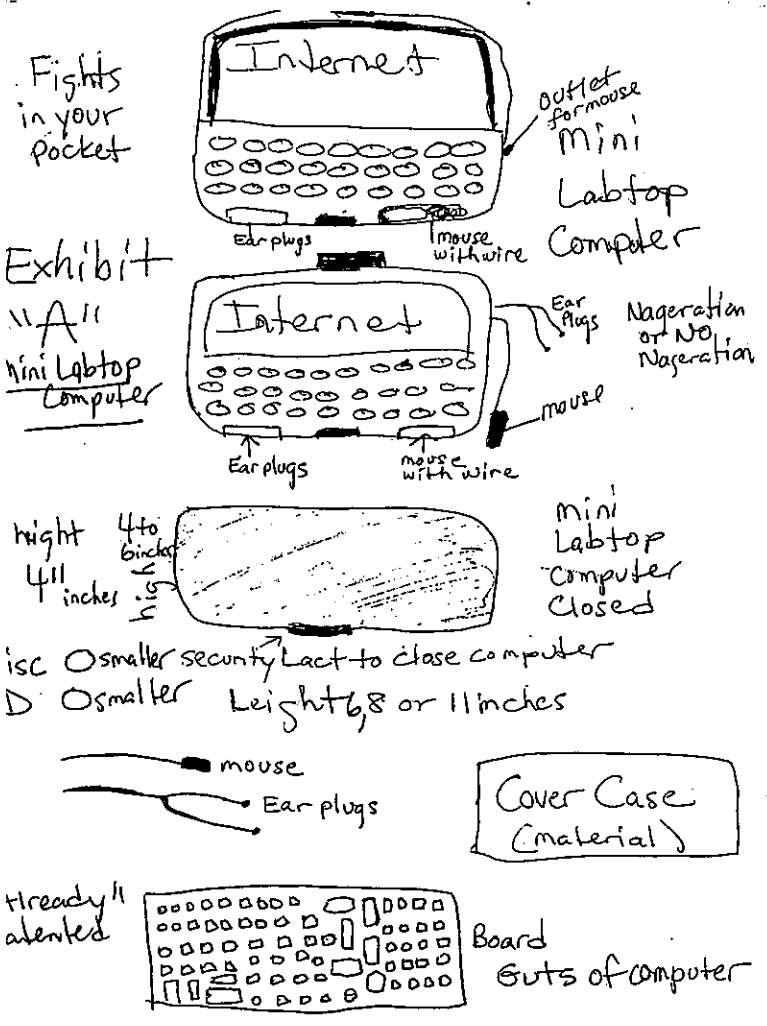 Internet
Fights
in your
pocket
outlet
for mouse
Mini
Labtop
Computer
Ear plugs
mouse
with wire
Exhibit
"A"
mini Labtop
Computer
Internet
Ear
Plugs
Nageration
or NO
Nageration
mouse
Ear plugs
mouse
with wire
hight
4"
inches
4 to
6 inches
high
Mini
Labtop
Computer
Closed
isc O smaller security Lact to close computer
D O smaller Leight 6,8 or 11 inches
mouse
Ear plugs
Cover Case
(material)
Already"
atented
Board
Guts of computer